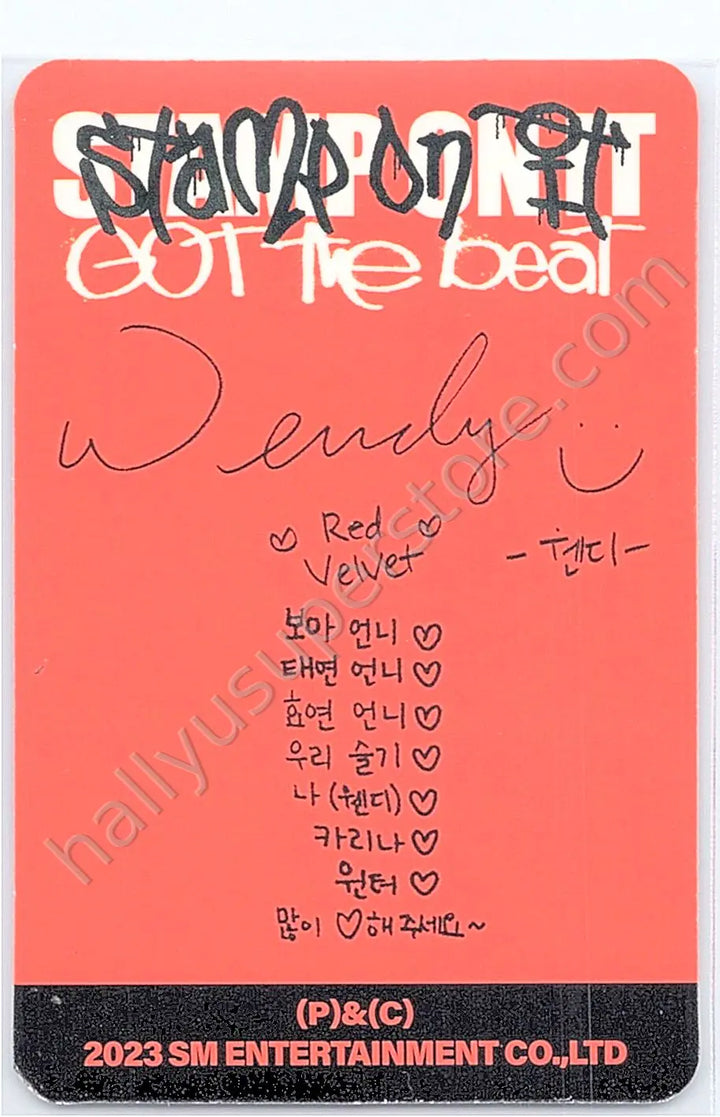 STAMP ON IT
Stamp on it
GOT the beat
Wendy :)
♡ Red ♡
Velvet
- 웬디 -
보아 언니 ♡
태연 언니 ♡
효연 언니 ♡
우리 슬기 ♡
나 (웬디) ♡
카리나 ♡
윈터 ♡
많이 ♡해 주세요~
(P)&(C)
2023 SM ENTERTAINMENT CO.,LTD
hallyusuperstore.com